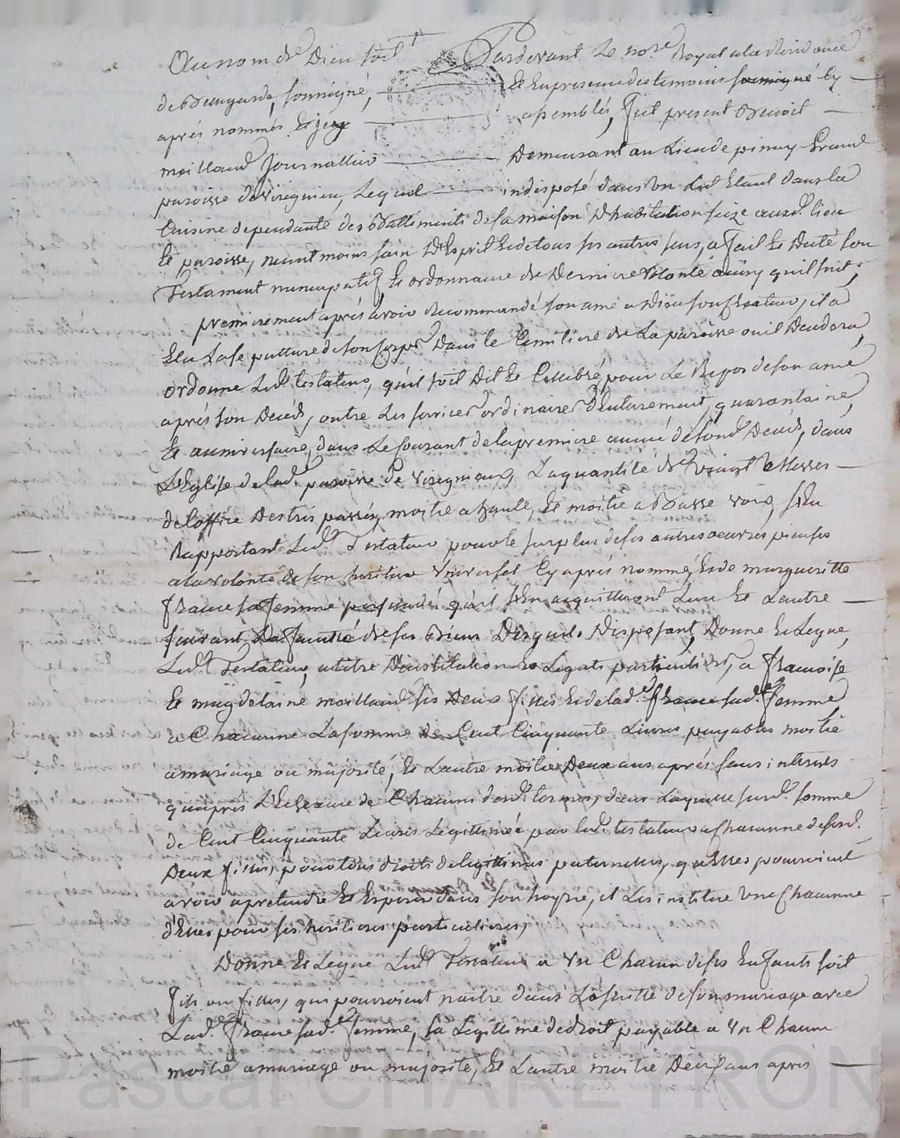 Au nom de Dieu soit Pardevant Le no.re Royal a la Residence
de Beaugarde, soussigné, Et En presence des temoins soussigné Cy
aprés nommés Et assemblés, fut present Benoit
mailland Journallier Demeurant au Lieu de pinay Grand
paroisse de Virignieu, Lequel indisposé dans Un Lit Etant dans la
Cuisine dependante des Battiments de sa maison D'habitation size aud.t lieu
Et paroisse, neant moins sain D'Esprit Et de tous ses autres sens, a fait Et Dicté son
Testament nuncupatif Et ordonnance de Derniere Volonté ainsy qu'il suit;
premierement aprés avoir Recommandé son ame a Dieu son Createur, il a
Elu La Sepulture de son Corps Dans le Cimitiere de La paroisse ou il Decedera,
ordonne Led.t testateur, qu'il soit Dit Et Cellebré pour Le Repos de son ame,
aprés son Decés, outre Les services ordinaires D'Enterrement, quarantaine,
Et anniversaire, dans Le Courant de la premiere année de sond.t Decés, dans
L'Eglise de lad.te paroisse de Virignieux La quantité de Vingt Messes
de L'office Des tres passés, moitié a haute Et moitié a Basse Voix, s'En
Rapportant Led.t Testateur pour le surplus de ses autres oeuvres pieuses
a la Volonté de son heritier Universel Cy aprés nommé, Et de margueritte
france sa femme persuadé qu'ils s'En acquitteront L'une Et L'autre
suivant La faculté de ses Biens Desquels Disposant, Donne Et Legue,
Led.t Testateur, a titre D'institution Et Legats particuliers, a francoise
Et magdelaine mailland ses Deux filles Et de lad.te france sad.te femme
a Chacune La somme de Cent Cinquante Livres payables moitié
a mariage ou majorité, Et L'autre moitié Deux ans aprés sans interets
qu'aprés L'Echeance de Chacuns desd.ts termes, dans Laquelle susd.te somme
de Cent Cinquante Livres Legitimée par Led.t testateur a Chacune de sesd.
Deux filles, pour tous droits de legittimes paternelles, qu'Elles pourroient
avoir a pretendre Et Esperer dans son hoyrie, il Les institue Une Chacune
d'Elles pour ses heritieres particulieres,
Donne Et Legue Led.t Testateur a Un Chacun de ses Enfants soit
fils ou filles, qui pourroient naitre dans La suitte de son mariage avec
Lad.te france sad.te femme, sa Legittime de droit payable a Un Chacun
moitié a mariage ou majorité, Et L'autre moitié Deux ans aprés
Pascal CHAREYRON